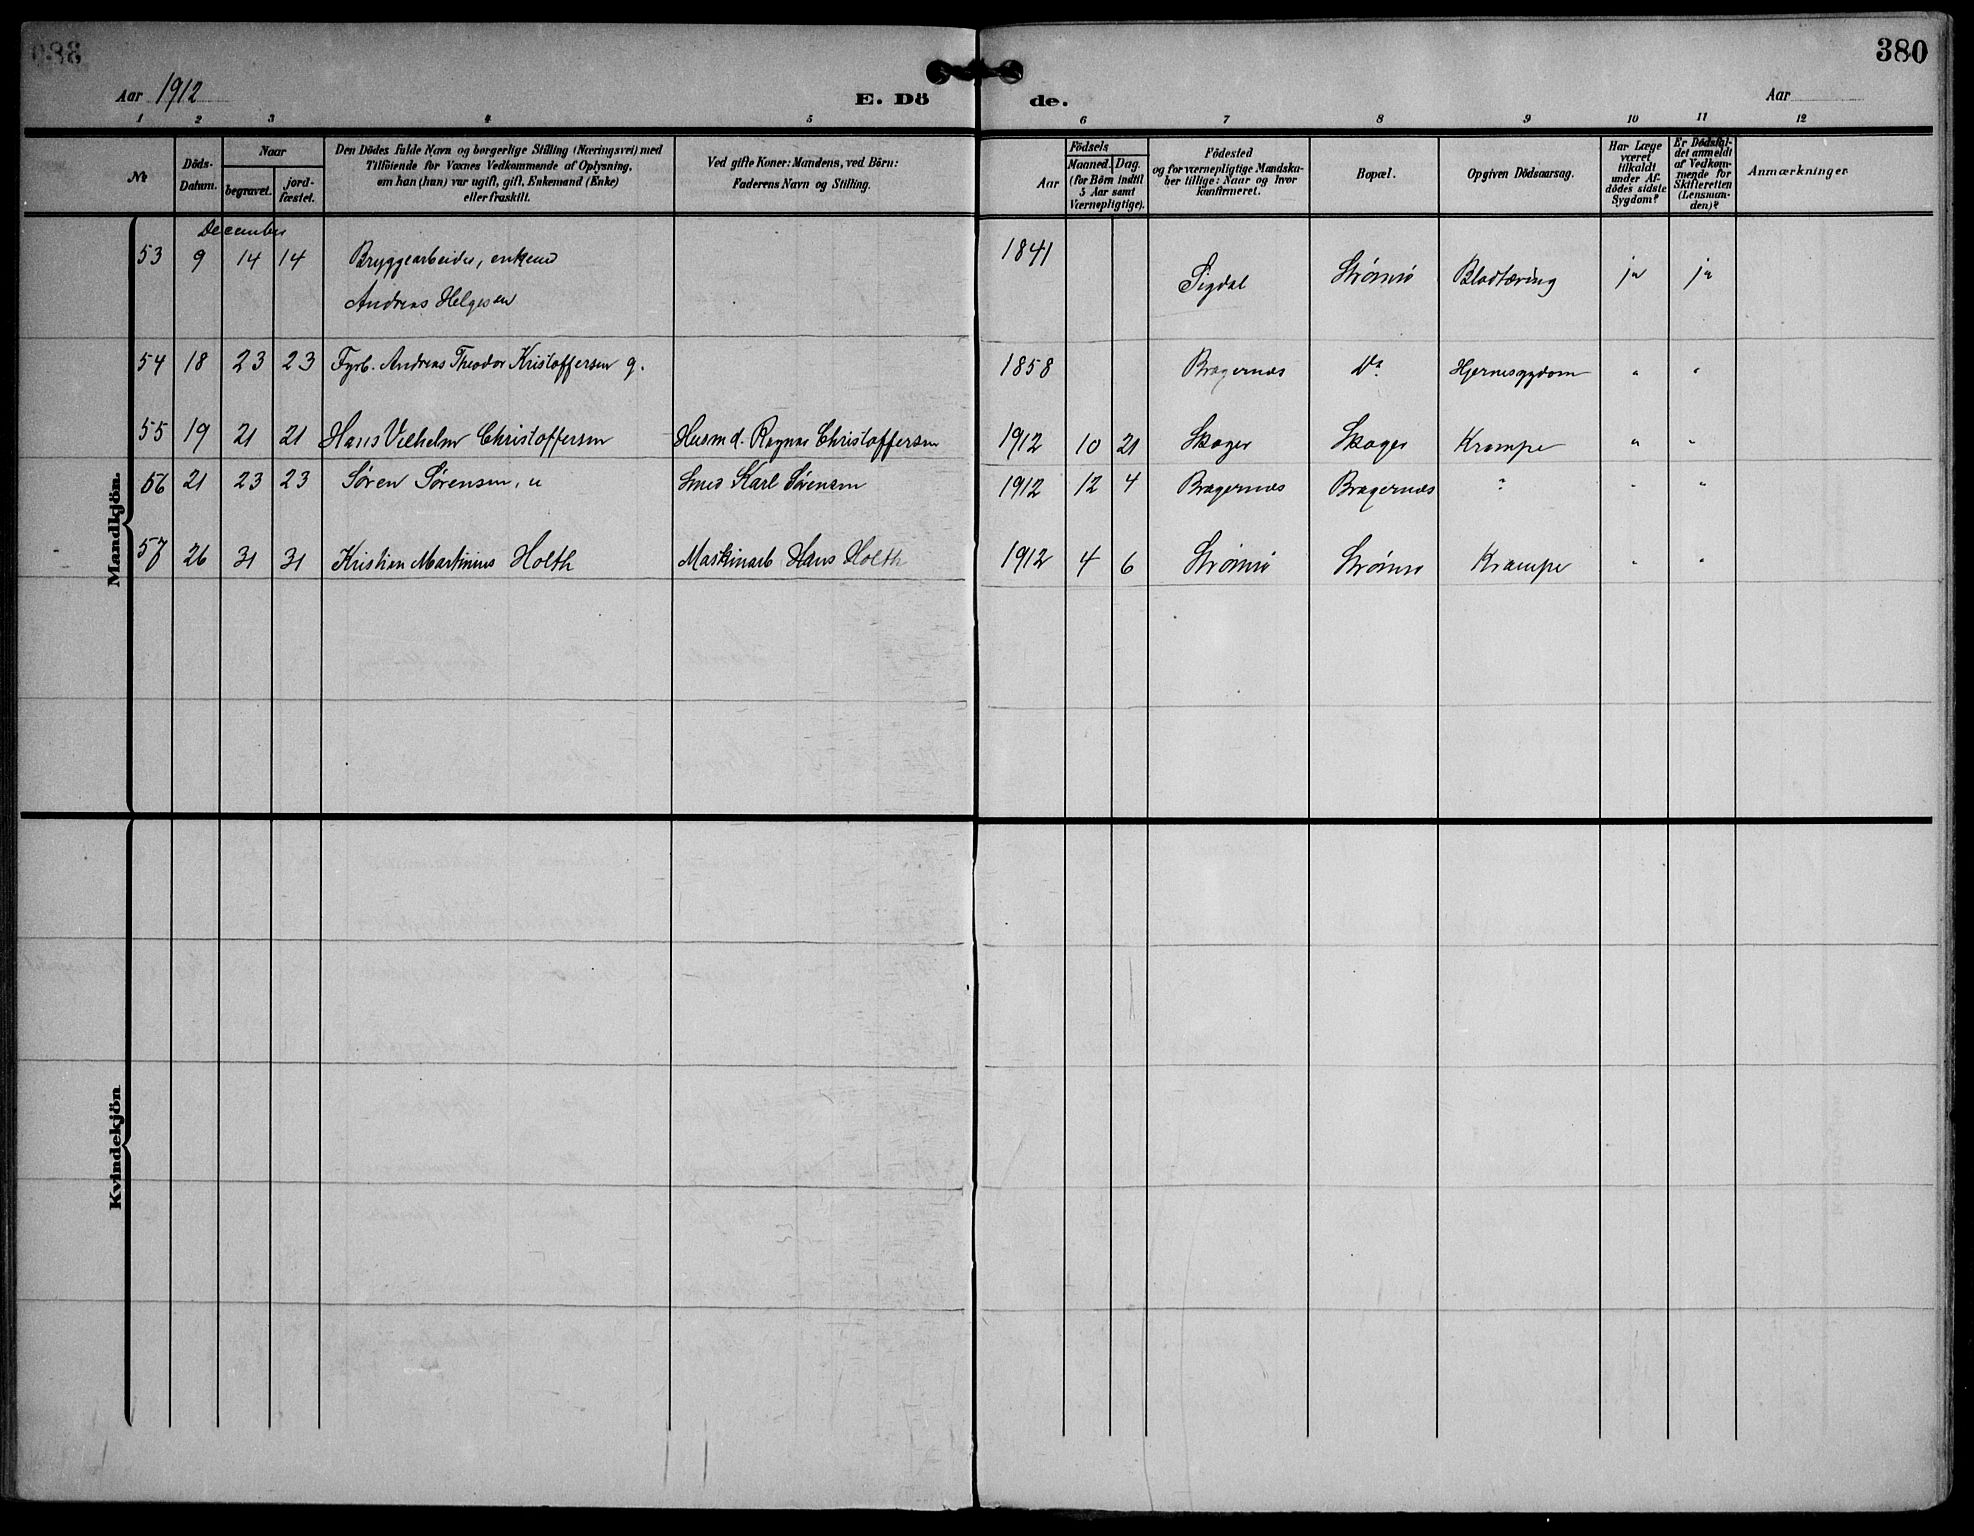 380
Aar 1912
E. Dö de.
Aar
1 2 3 4 5 6 7 8 9 10 11 12
Nr.
Döds-Datum.
Naar
begravet.
jord-fæstet.
Den Dödes fulde Navn og borgerlige Stilling (Næringsvei) med
Tilföiende for Voxnes Vedkommende af Oplysning,
om han (hun) var ugift, gift, Enkemand (Enke)
eller fraskilt.
Ved gifte Koner: Mandens, ved Börn:
Faderens Navn og Stilling.
Födsels
Aar
Maaned.
Dag.
(for Börn indtil
5 Aar samt
Værnepligtige).
Födested
og for værnepligtige Mandska-
ber tillige: Naar og hvor
konfirmeret.
Bopæl.
Opgiven Dödsaarsag.
Har Læge
været
tilkaldt
under Af-
dödes sidste
Sygdom?
Er Dödsfal-
det anmeldt
af Vedkom-
mende for
Skifteretten
(Lensman-
den)?
Anmærkninger
Mandkjön.
December
53 9 14 14 Bryggearbeider, enkemd 1841 Sigdal Strømsø Blodtæring ja ja
Andreas Helgesen
54 18 23 23 Fyrb. Andreas Theodor Kristoffersen g. 1858 Bragernæs Do Hjernesygdom " "
55 19 21 21 Hans Vilhelm Christoffersen Husmd. Ragnar Christoffersen 1912 10 21 Skoger Skoger Krampe " "
56 21 23 23 Søren Sørensen, u Smed Karl Sørensen 1912 12 4 Bragernæs Bragernæs " " "
57 26 31 31 Kristian Martinius Holth Maskinarb Hans Holth 1912 4 6 Strømsø Strømsø Krampe " "
Kvindekjön